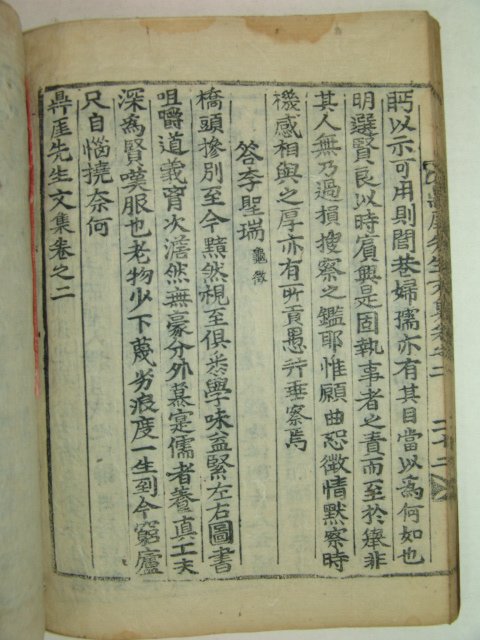 眄以示可用則閭巷婦孺亦有其目當以爲何如也
明選賢良以時賓興是固執事者之責而至於擧非
其人無乃過損搜察之鑑耶惟願曲恕微情默察時
機感相與之厚亦有所貢愚幷垂察焉
答李聖瑞 龜徵
橋頭摻別至今黯然梘至俱悉學味益緊左右圖書
咀嚼道義胷次澹然無豪分外慕寔儒者養眞工夫
深爲賢嘆服也老物少下蔑劣浪度一生到今窮廬
尺自惱撓奈何
鼎厓先生文集卷之二
先生文集卷之二
二十二